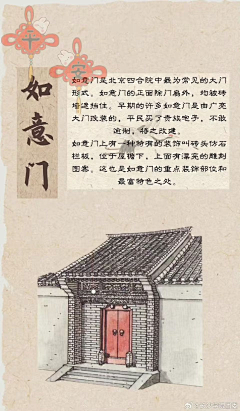 十
字
如意门
如意门是北京四合院中最为常见的大门
形式。如意门的正面除门扇外，均被砖
墙遮挡住。早期的许多如意门是由广亮
大门改装的，平民买了贵族宅子，不敢
逾制，将之改建。
如意门上有一种特有的装饰叫砖头饰石
栏板，位于屋檐下，上面有漂亮的雕刻
图案。这也是如意门的重点装饰部位和
最富特色之处。